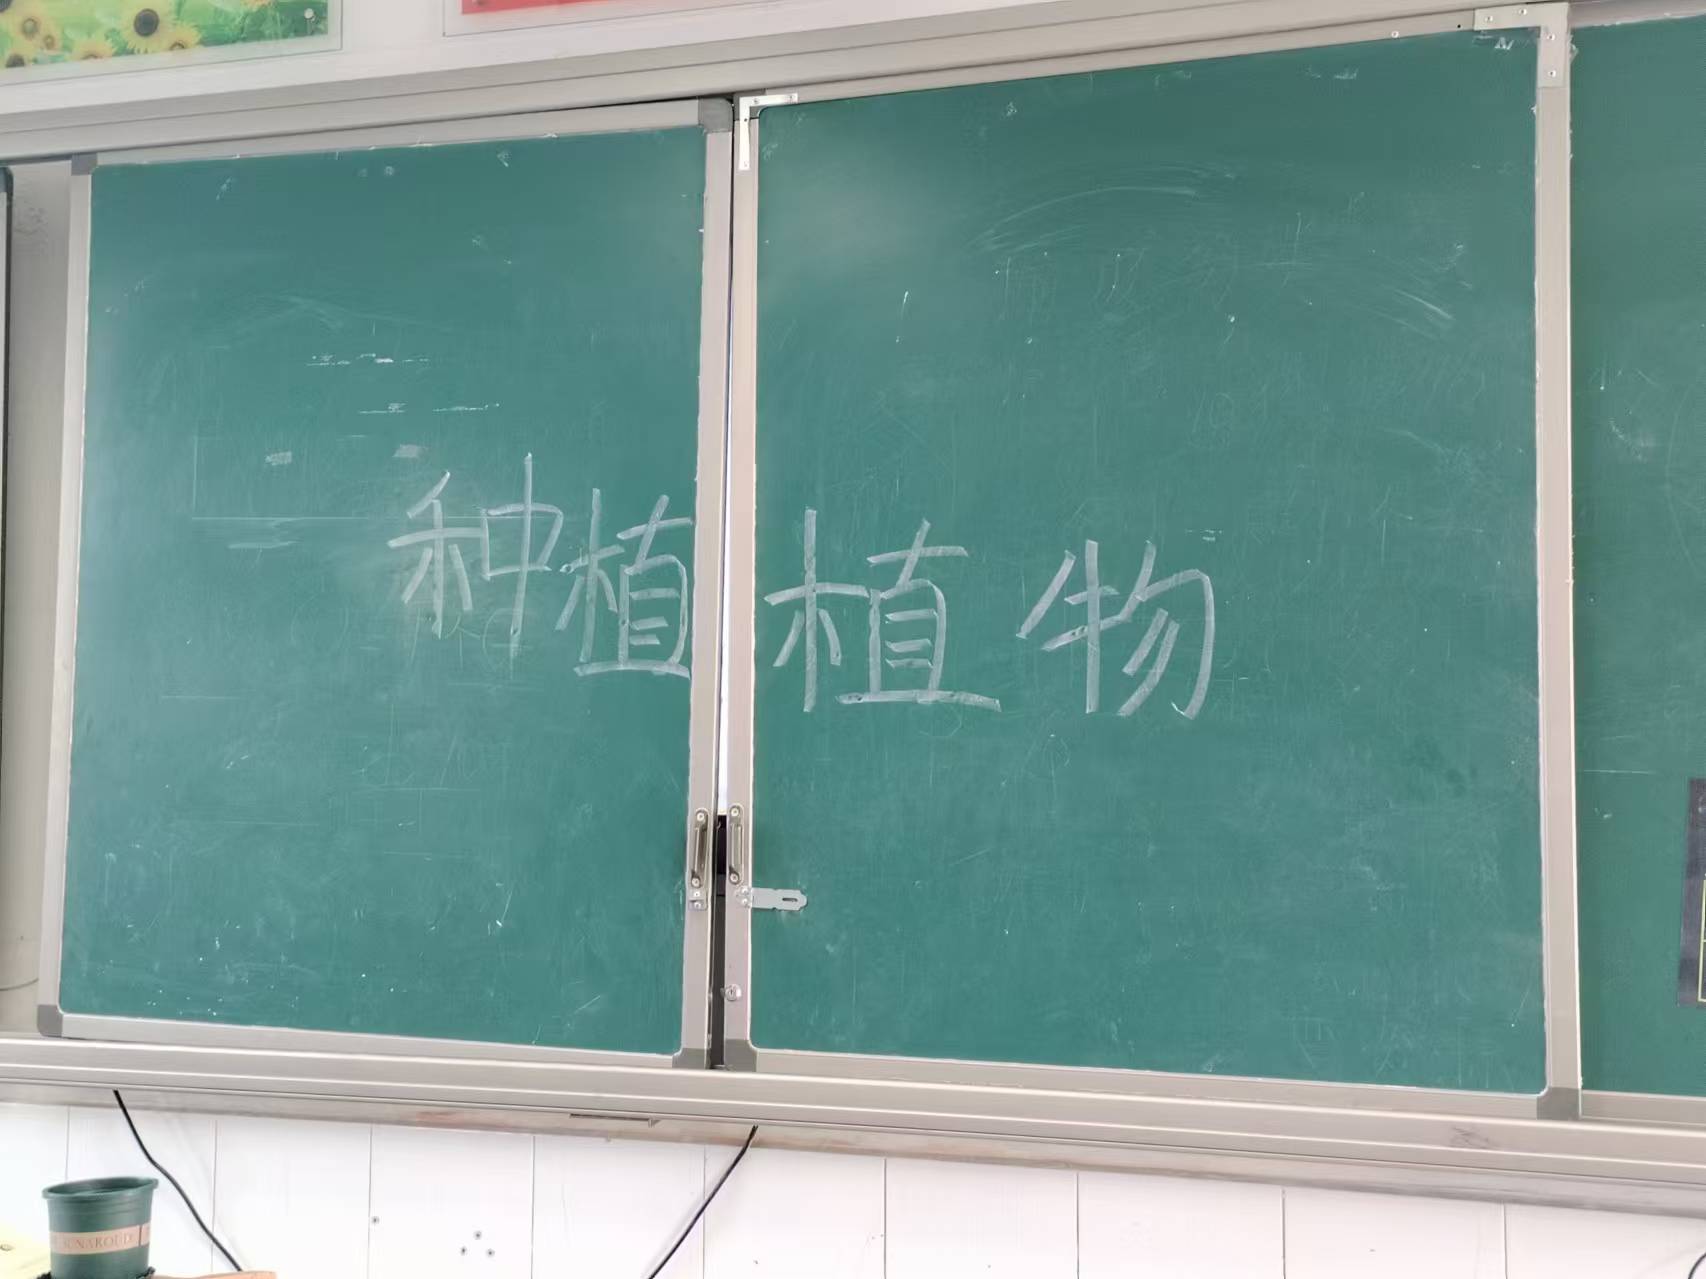 种植植物